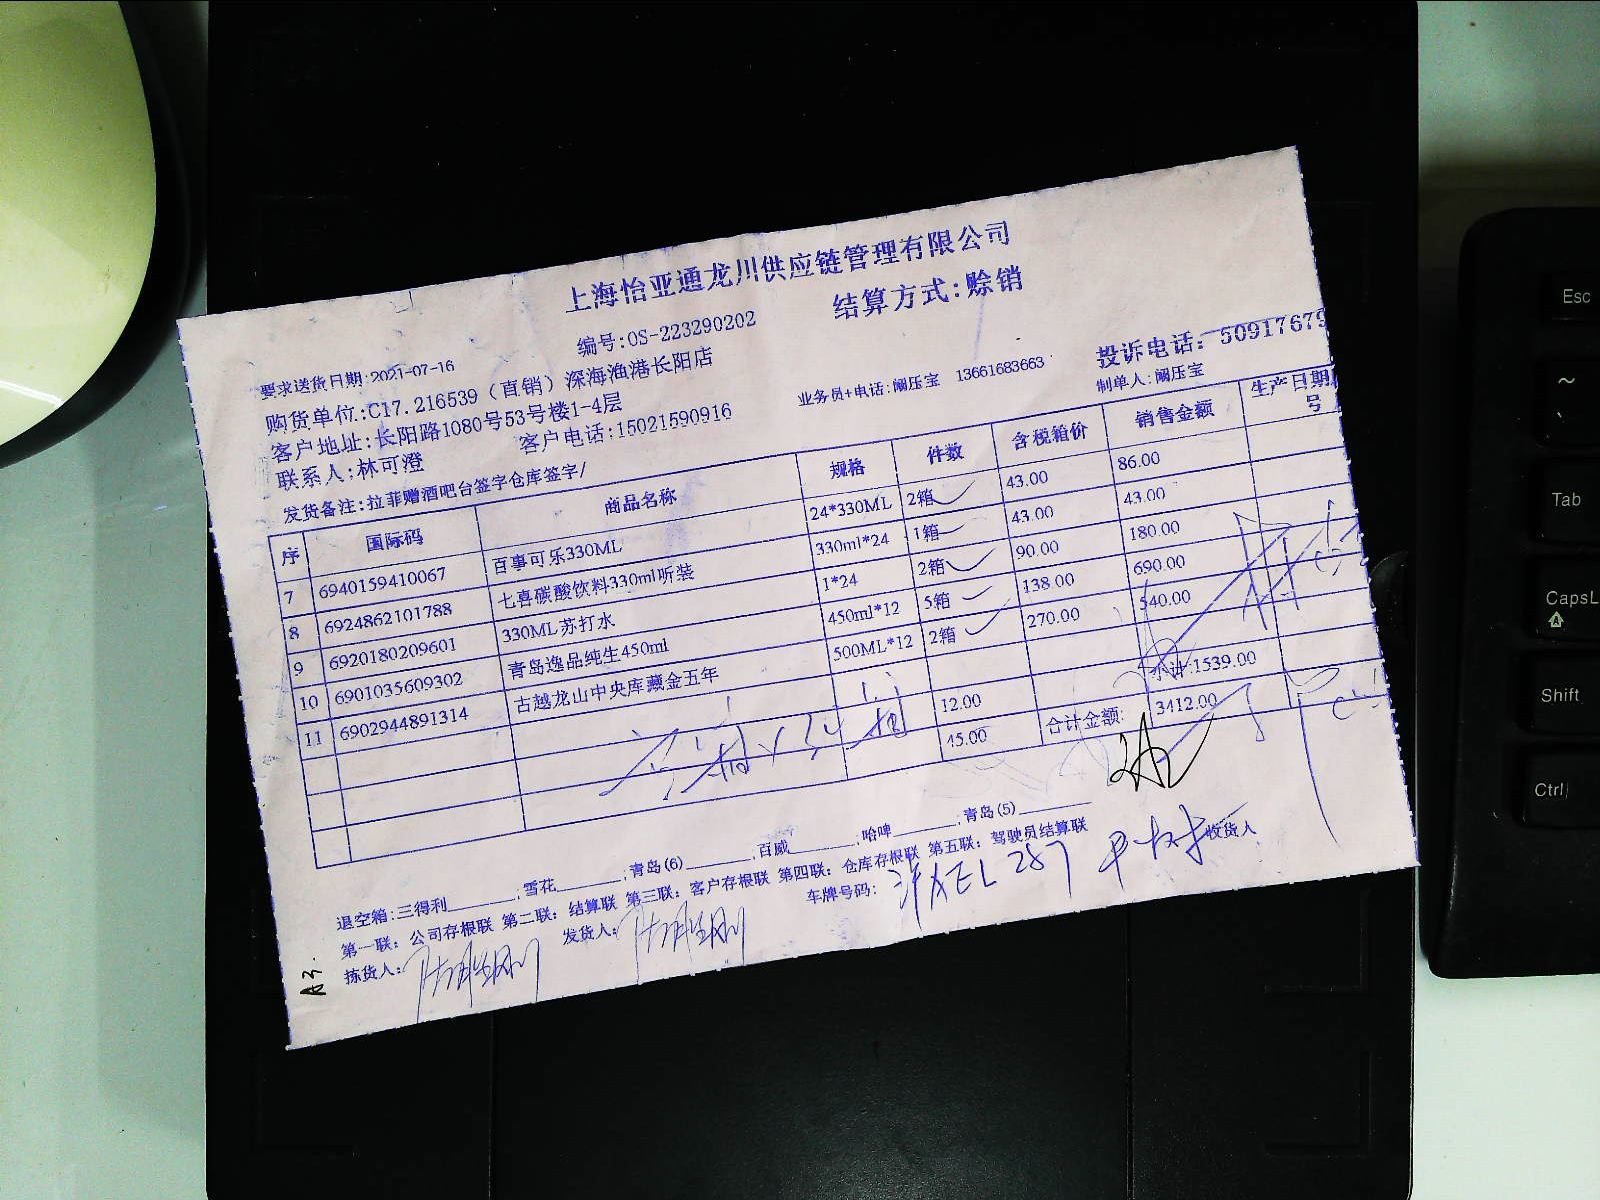 上海怡亚通龙川供应链管理有限公司
编号:OS-223290202 结算方式:赊销
要求送货日期:2021-07-16 投诉电话: 50917679
购货单位.:C17.216539（直销）深海渔港长阳店 业务员+电话:阚压宝 13661683663 制单人:阚压宝
客户地址:长阳路1080号53号楼1-4层
联系人;林可澄 客户电话:15021590916
发货备注:拉菲赠酒吧台签字仓库签字/
序 国际码 商品名称 规格 件数 含税箱价 销售金额 生产日期
号
7 6940159410067 百事可乐330ML 24*330ML 2箱 43.00 86.00
8 6924862101788 七喜碳酸饮料330ml听装 330ml*24 1箱 43.00 43.00
9 6920180209601 330ML苏打水 1*24 2箱 90.00 180.00
10 6901035609302 青岛逸品纯生450ml 450ml*12 5箱 138.00 690.00
11 6902944891314 古越龙山中央库藏金五年 500ML*12 2箱 270.00 540.00
12.00 小计:1539.00
45.00 合计金额: 3412.00
退空箱:三得利______;雪花______;青岛(6)______;百威______;哈啤______;青岛(5)______
第一联: 公司存根联 第二联: 结算联 第三联: 客户存根联 第四联: 仓库存根联 第五联: 驾驶员结算联
拣货人: 发货人: 车牌号码: EL287 收货人
A3.
Esc
~
Tab
CapsL
A
Shift
Ctrl